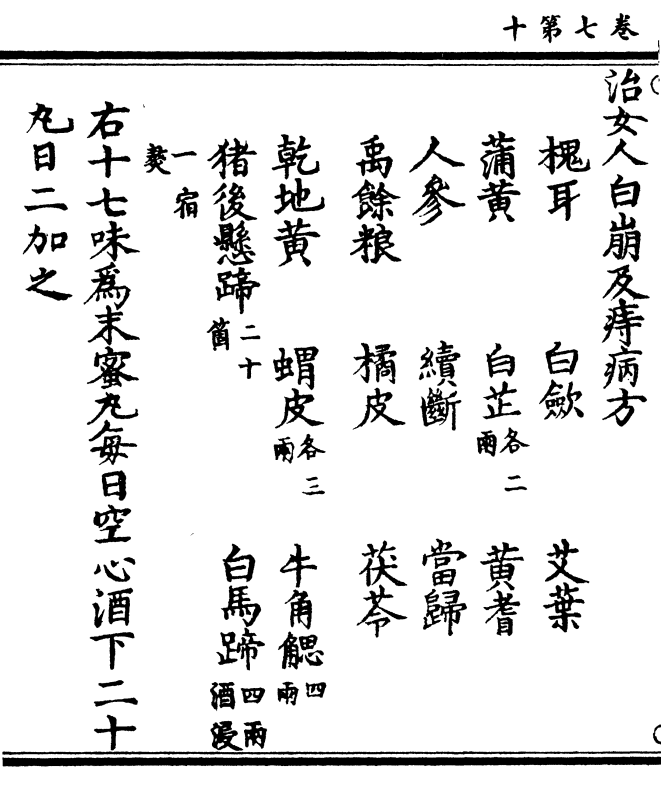 卷七第十
治女人白崩及痔病方
槐耳 白歛 艾葉
蒲黄 白芷各二兩 黄耆
人參 續斷 當歸
禹餘粮 橘皮 茯苓
乾地黄 蝟皮各三兩 牛角䚡四兩
猪後懸蹄二十箇 白馬蹄四兩酒浸
一宿熬
右十七味爲末蜜丸每日空心酒下二十
丸日二加之